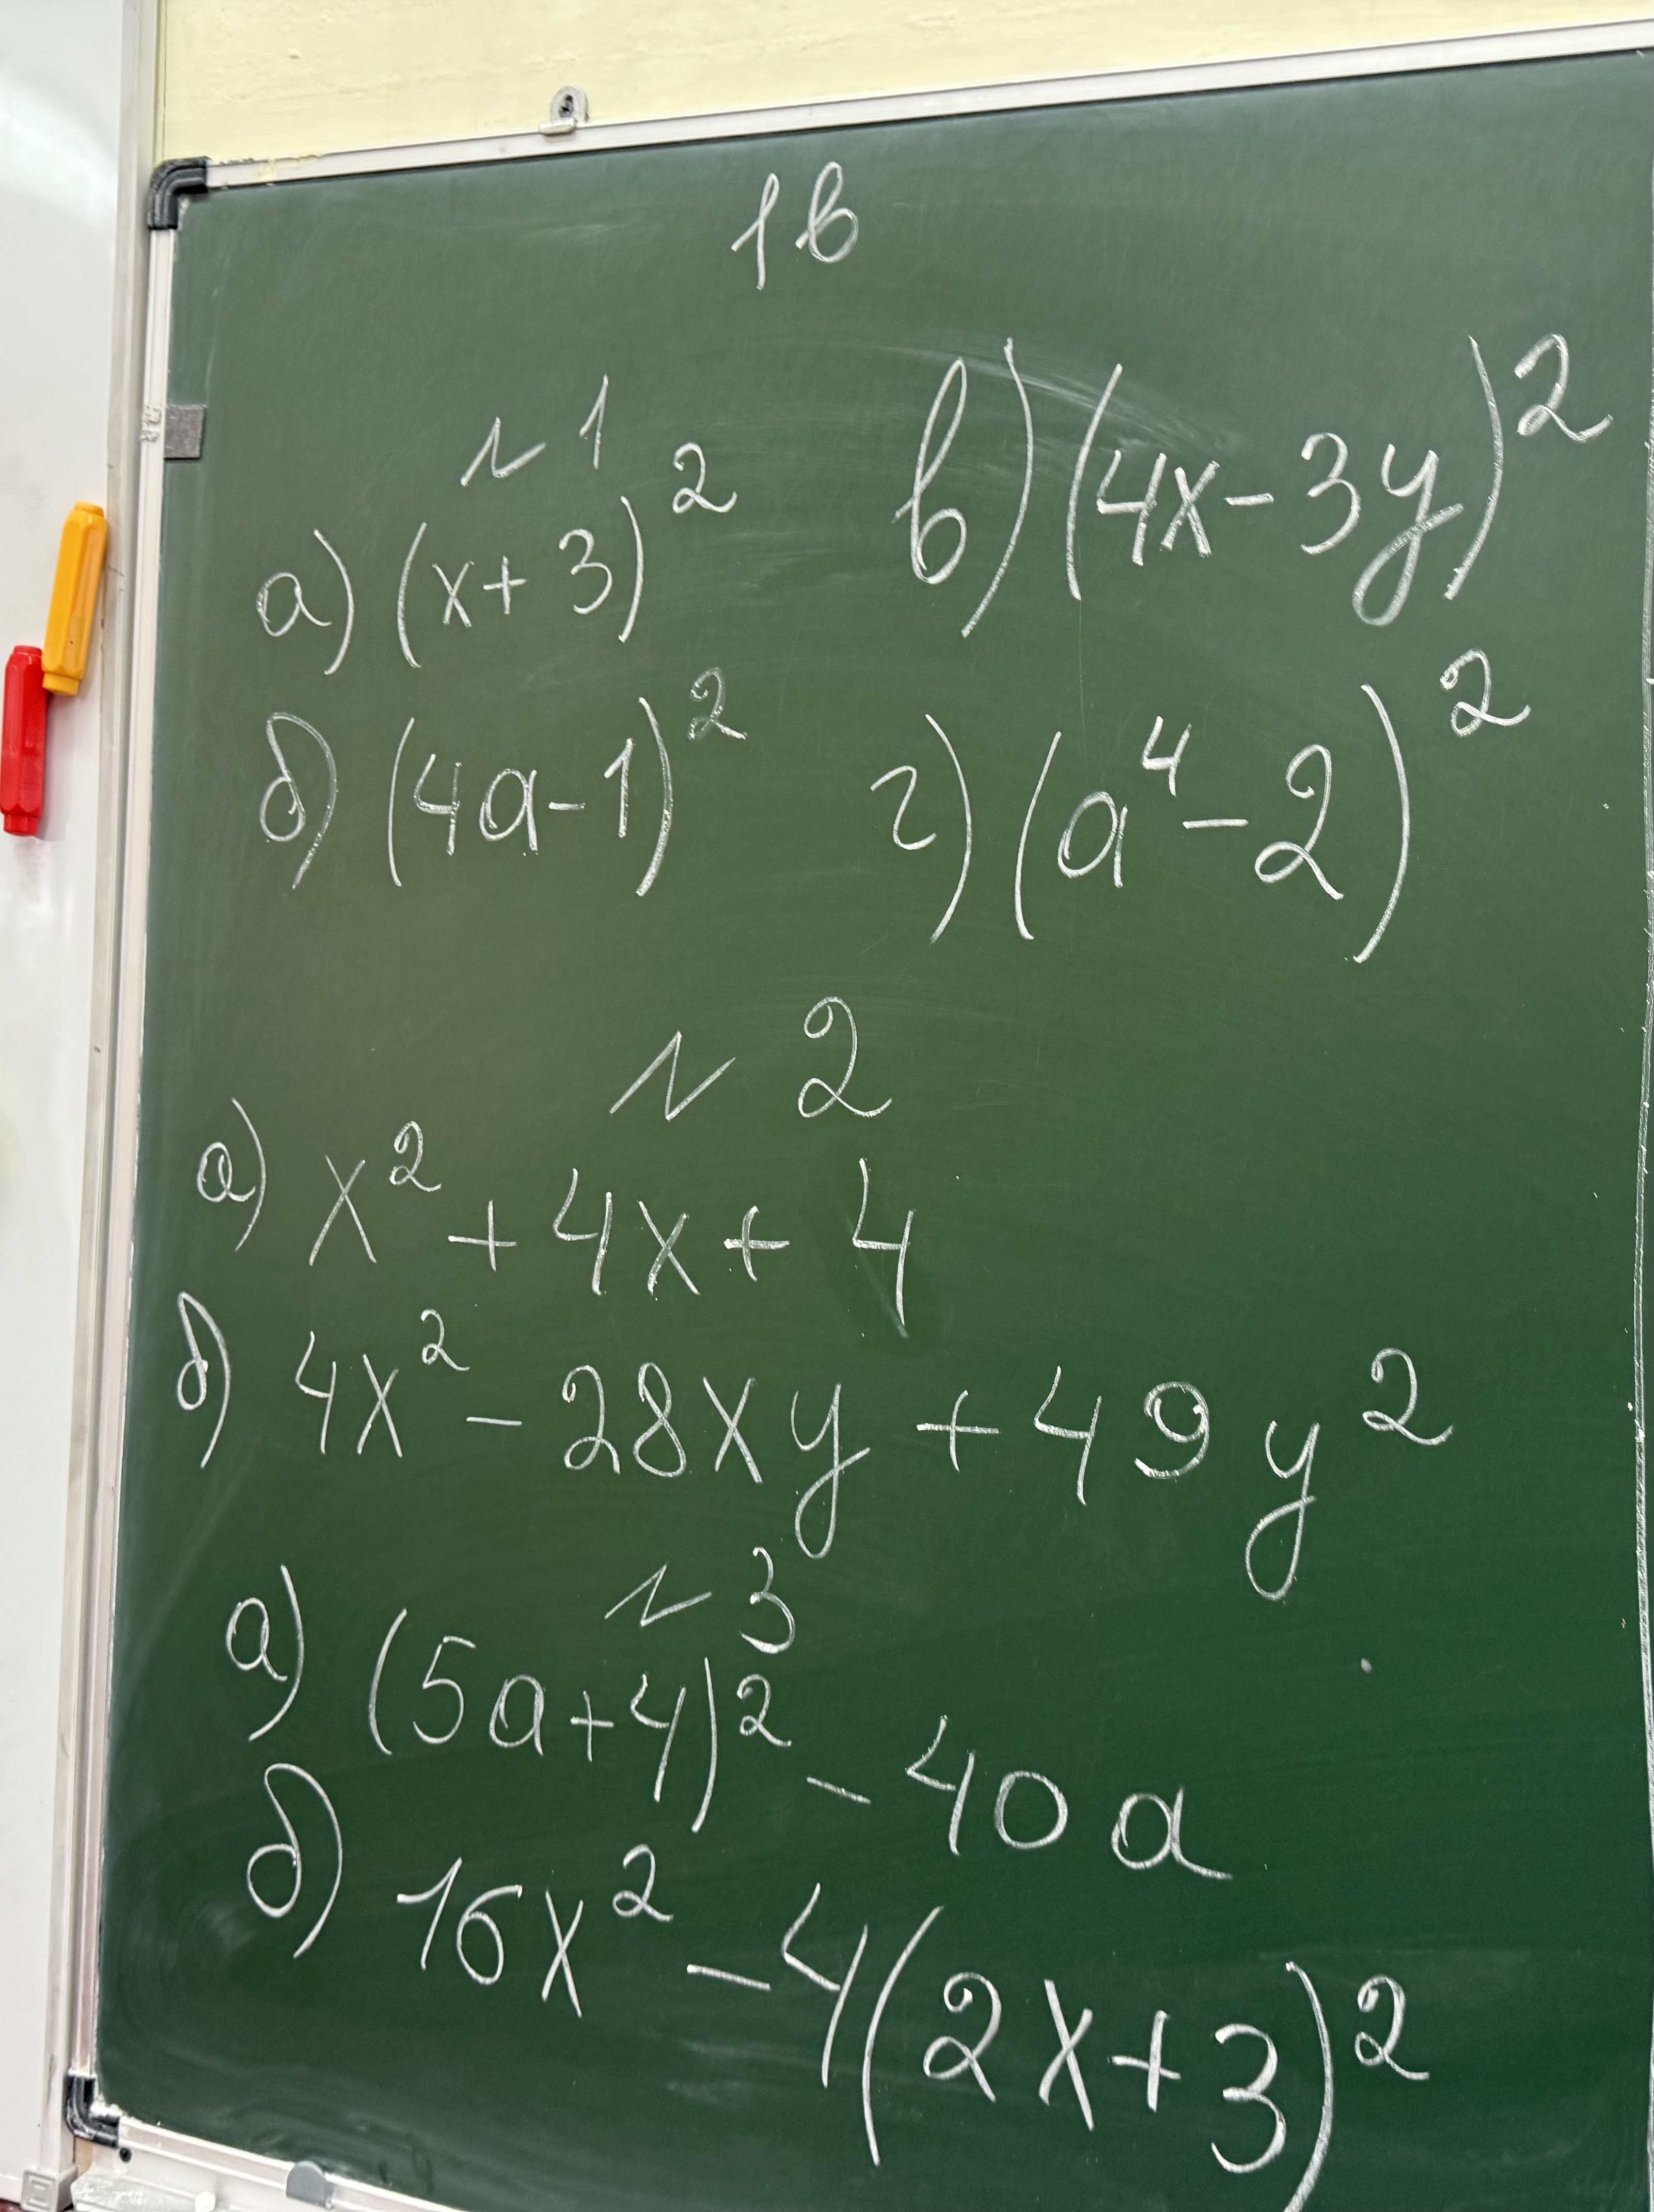 1в
№1
а) (x+3)²
б) (4a-1)²
в) (4x-3y)²
г) (a⁴-2)²
№2
а) x²+4x+4
б) 4x²-28xy+49y²
№3
а) (5a+4)²-40a
б) 16x²-4(2x+3)²